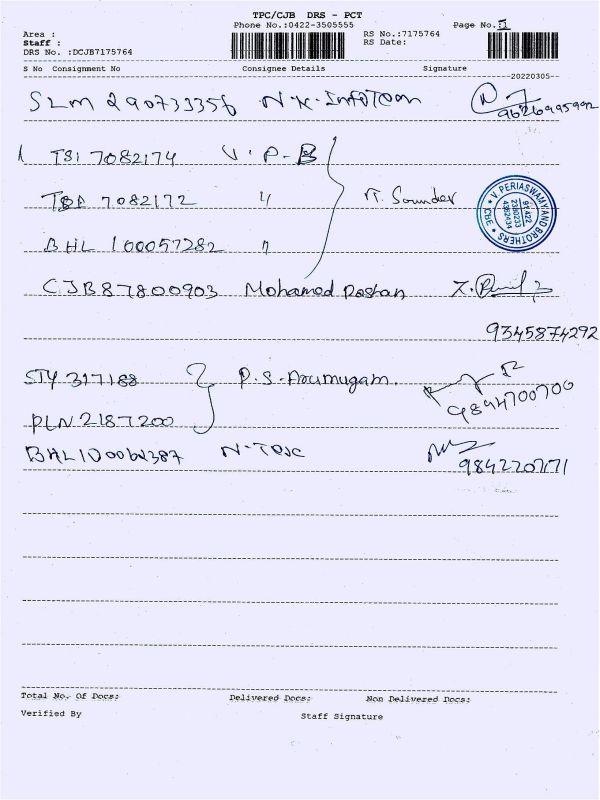 TPC/CJB DRS - PCT
Phone No.:0422-3505555
Page No. 1
Area :
Staff :
DRS No. :DCJB7175764
RS No.:7175764
RS Date:
S No Consignment No Consignee Details Signature
20220305
SLM 290733356 N.K. InfoTech
9626995992
1 TSI 7082174 V.P.B
7082172 "
T. Sounder
V. PERIASWAMY AND BROTHERS
CBE
BHL 100057282 "
CJB87800903 Mohamed Roshan
9345874292
STY 317188 P.S. Arumugam.
9894700700
PLN 2187200
N-TEX
9842207171
Total No. Of Docs:
Delivered Docs:
Non Delivered Docs:
Verified By
Staff Signature